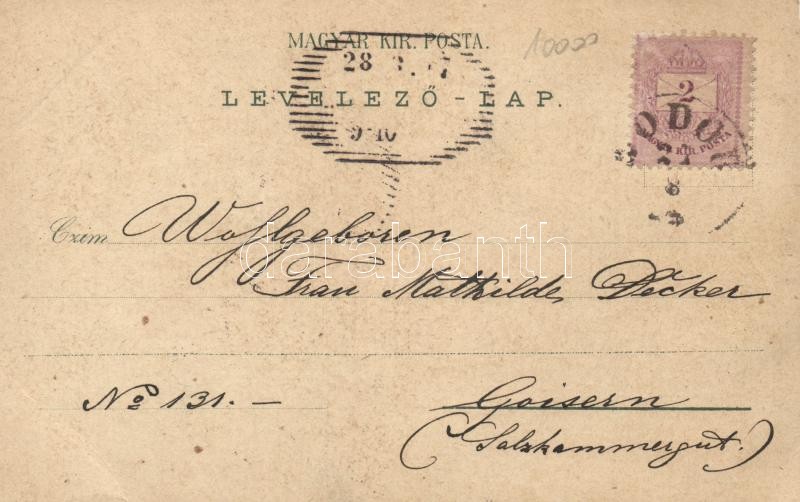 MAGYAR KIR. POSTA.
10000
28
9-10
LEVELEZŐ-LAP.
2
MAGY. KIR. POSTA
Czim Wohlgeboren
darabanth
Frau Mathilde Decker
No 131.-
Goisern
(Salzkammergut.)